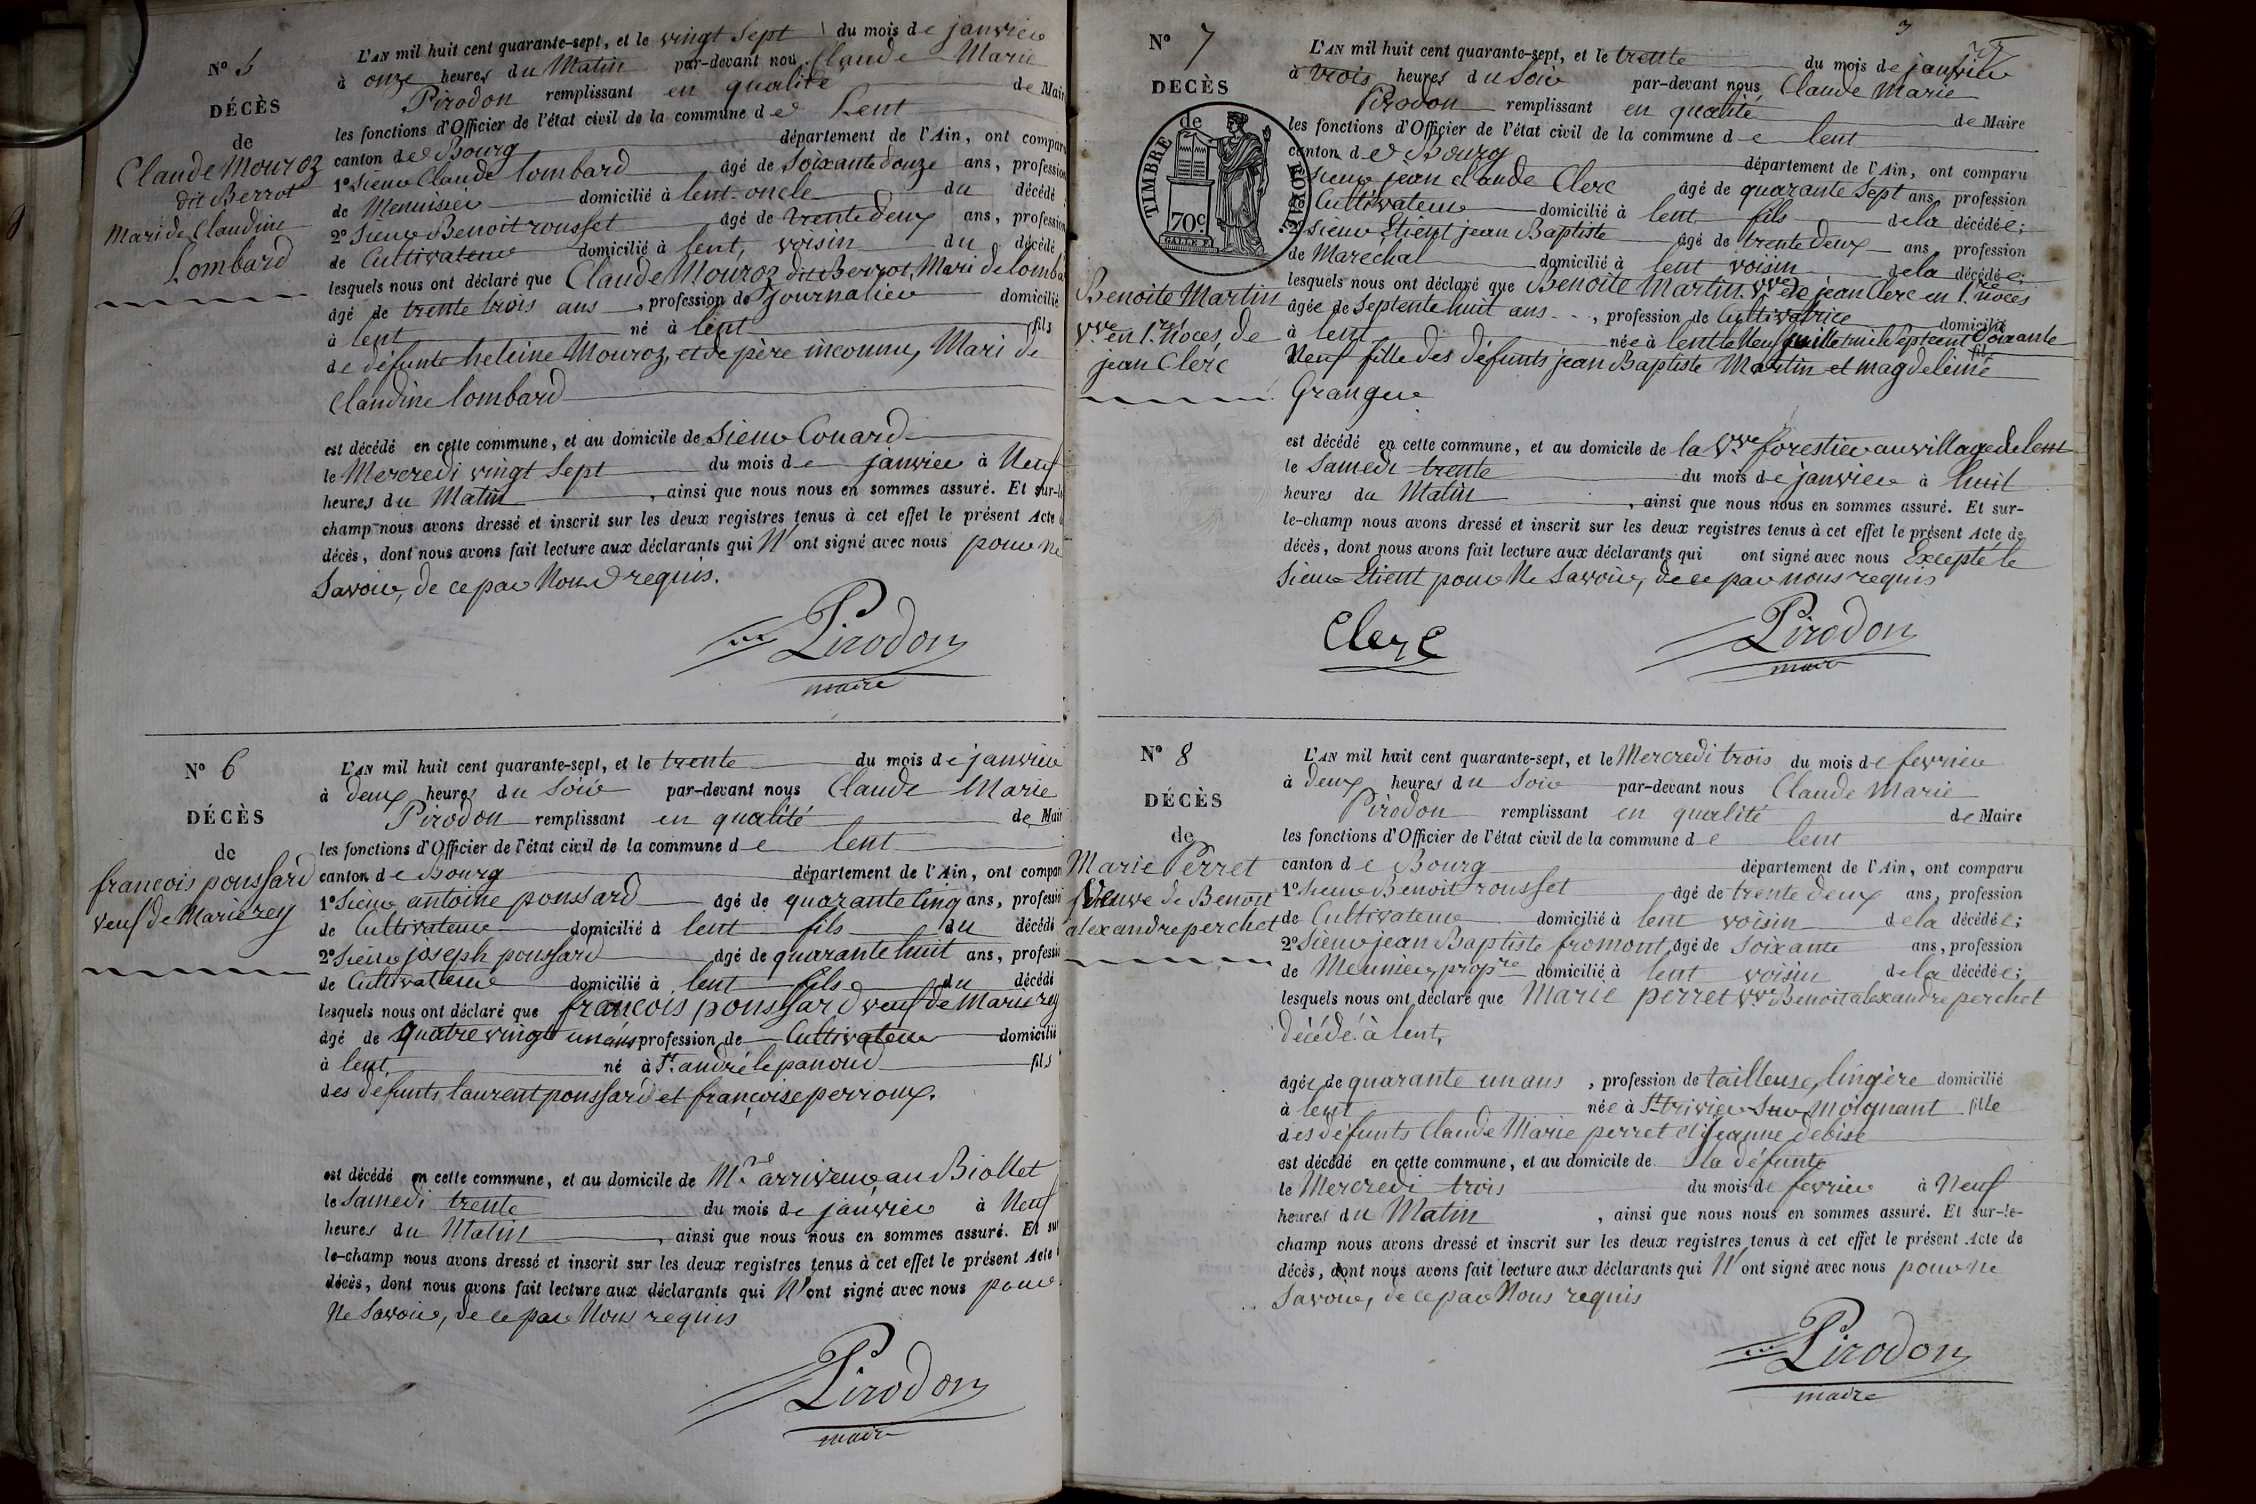 N° 5
DÉCÈS
de
Claude Mouroz
dit Berrot
Mari de Claudine
Lombard
L'AN mil huit cent quarante-sept, et le vingt Sept du mois de janvier
à onze heures du Matin par-devant nous Claude Marie
Pirodon remplissant en qualité de Mair
les fonctions d'Officier de l'état civil de la commune de Lent
canton de Bourg département de l'Ain, ont compar
1° Sieur Claude lombard âgé de Soixante douze ans, profession
de Menuisier domicilié à lent oncle du décédé
2° Sieur Benoit rousset âgé de trente deux ans, profession
de Cultivateur domicilié à lent, voisin du décédé
lesquels nous ont déclaré que Claude Mouroz dit Berrot, Mari de lomba
âgé de trente trois ans, profession de journalier domicilié
à lent né à lent fils
de défunte heleine Mouroz, et de père inconnu, Mari de
Claudine lombard
est décédé en cette commune, et au domicile de Sieur Couard
le Mercredi vingt Sept du mois de janvier à Neuf
heures du Matin, ainsi que nous nous en sommes assuré. Et sur-le
champ nous avons dressé et inscrit sur les deux registres tenus à cet effet le présent Acte d
décès, dont nous avons fait lecture aux déclarants qui N'ont signé avec nous pour ne
Savoir, de ce par Nous requis.
Pirodon
maire
N° 6
DÉCÈS
de
francois poussard
veuf de Marie rey
L'AN mil huit cent quarante-sept, et le trente du mois de janvier
à deux heures du Soir par-devant nous Claude Marie
Pirodon remplissant en qualité de Mair
les fonctions d'Officier de l'état civil de la commune de lent
canton de Bourg département de l'Ain, ont compar
1° Sieur antoine poussard âgé de quarante cinq ans, professi
de Cultivateur domicilié à lent fils du décédé
2° Sieur joseph poussard âgé de quarante huit ans, professi
de Cultivateur domicilié à lent fils du décédé
lesquels nous ont déclaré que francois poussard veuf de Marie rey
âgé de quatre vingt un ans profession de Cultivateur domicilié
à lent né à St. andré le panoud fils
des defunts laurent poussard et françoise perroux.
est décédé en cette commune, et au domicile de Mr arriveur au Biollet
le Samedi trente du mois de janvier à Neuf
heures du Matin, ainsi que nous nous en sommes assuré. Et sur
le-champ nous avons dressé et inscrit sur les deux registres tenus à cet effet le présent Acte
décès, dont nous avons fait lecture aux déclarants qui N'ont signé avec nous pour
Ne Savoir, de ce par Nous requis
Pirodon
maire
3
N° 7
DÉCÈS
de
TIMBRE ROYAL
70c
GALLE F.
Benoite Martin
Vve en 1res Noces, de
jean Clerc
L'AN mil huit cent quarante-sept, et le trente du mois de janvier
à trois heures du Soir par-devant nous Claude Marie
Pirodon remplissant en qualité de Maire
les fonctions d'Officier de l'état civil de la commune de lent
canton de Bourg département de l'Ain, ont comparu
Sieur jean claude Clerc âgé de quarante Sept ans, profession
Cultivateur domicilié à lent fils de la décédée;
2° Sieur Etient jean Baptiste âgé de trente deux ans, profession
de Maréchal domicilié à lent voisin de la décédée;
lesquels nous ont déclaré que Benoite Martin Vve de jean Clerc en 1res noces
âgée de Septente huit ans, profession de Cultivatrice domicilié
à lent née à lent le Neuf juillet mil Sept cent Soixante
Neuf fille des défunts jean Baptiste Martin et magdeleine
Grangue
est décédé en cette commune, et au domicile de la Vve forestier au village de lent
le Samedi trente du mois de janvier à huit
heures du Matin, ainsi que nous nous en sommes assuré. Et sur-
le-champ nous avons dressé et inscrit sur les deux registres tenus à cet effet le présent Acte de
décès, dont nous avons fait lecture aux déclarants qui ont signé avec nous Excepté le
Sieur Etient pour Ne Savoir, de ce par nous requis
Clerc
Pirodon
maire
N° 8
DÉCÈS
de
Marie Perret
Veuve de Benoit
alexandre perchet
L'AN mil huit cent quarante-sept, et le Mercredi trois du mois de fevrier
à deux heures du Soir par-devant nous Claude Marie
Pirodon remplissant en qualité de Maire
les fonctions d'Officier de l'état civil de la commune de lent
canton de Bourg département de l'Ain, ont comparu
1° Sieur Benoit rousset âgé de trente deux ans, profession
de Cultivateur domicilié à lent voisin de la décédée;
2° Sieur jean Baptiste fromont, âgé de Soixante ans, profession
de Meunier, propre domicilié à lent voisin de la décédée;
lesquels nous ont déclaré que Marie perret Vve Benoit alexandre perchet
décédé à lent,
âgée de quarante un ans, profession de tailleuse, lingère domicilié
à lent née à St trivier Sur Moignant fille
des défunts Claude Marie perret et jeanne debise
est décédé en cette commune, et au domicile de la défunte
le Mercredi trois du mois de fevrier à Neuf
heures du Matin, ainsi que nous nous en sommes assuré. Et sur-le-
champ nous avons dressé et inscrit sur les deux registres tenus à cet effet le présent Acte de
décès, dont nous avons fait lecture aux déclarants qui N'ont signé avec nous pour ne
Savoir, de ce par Nous requis
Pirodon
maire